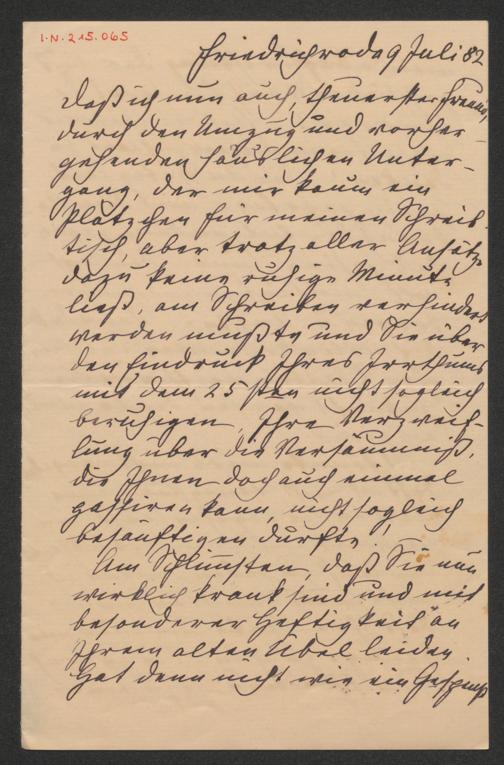 I.N. 215.065
Friedrichroda 9 Juli 82
Daß ich nun auch, theuerster Freund,
durch den Umzug und vorher-
gehenden häuslichen Unter-
gang, der mir kaum ein
Plätzchen für meinen Schreib-
tisch, aber trotz aller Ansätze
dazu keine ruhige Minute
ließ, am Schreiben verhindert
werden mußte und Sie über
den Eindruck Ihres Irrthums
mit dem 25sten nicht sogleich
beruhigen, Ihre Verzweif-
lung über die Versäumniß,
die Ihnen doch auch einmal
passiren kann, nicht sogleich
besänftigen durfte!
Am Schlimsten, daß Sie nun
wirklich krank sind und mit
besonderer Heftigkeit an
Ihrem alten Übel leiden.
Hat denn nicht wie ein Gespenst